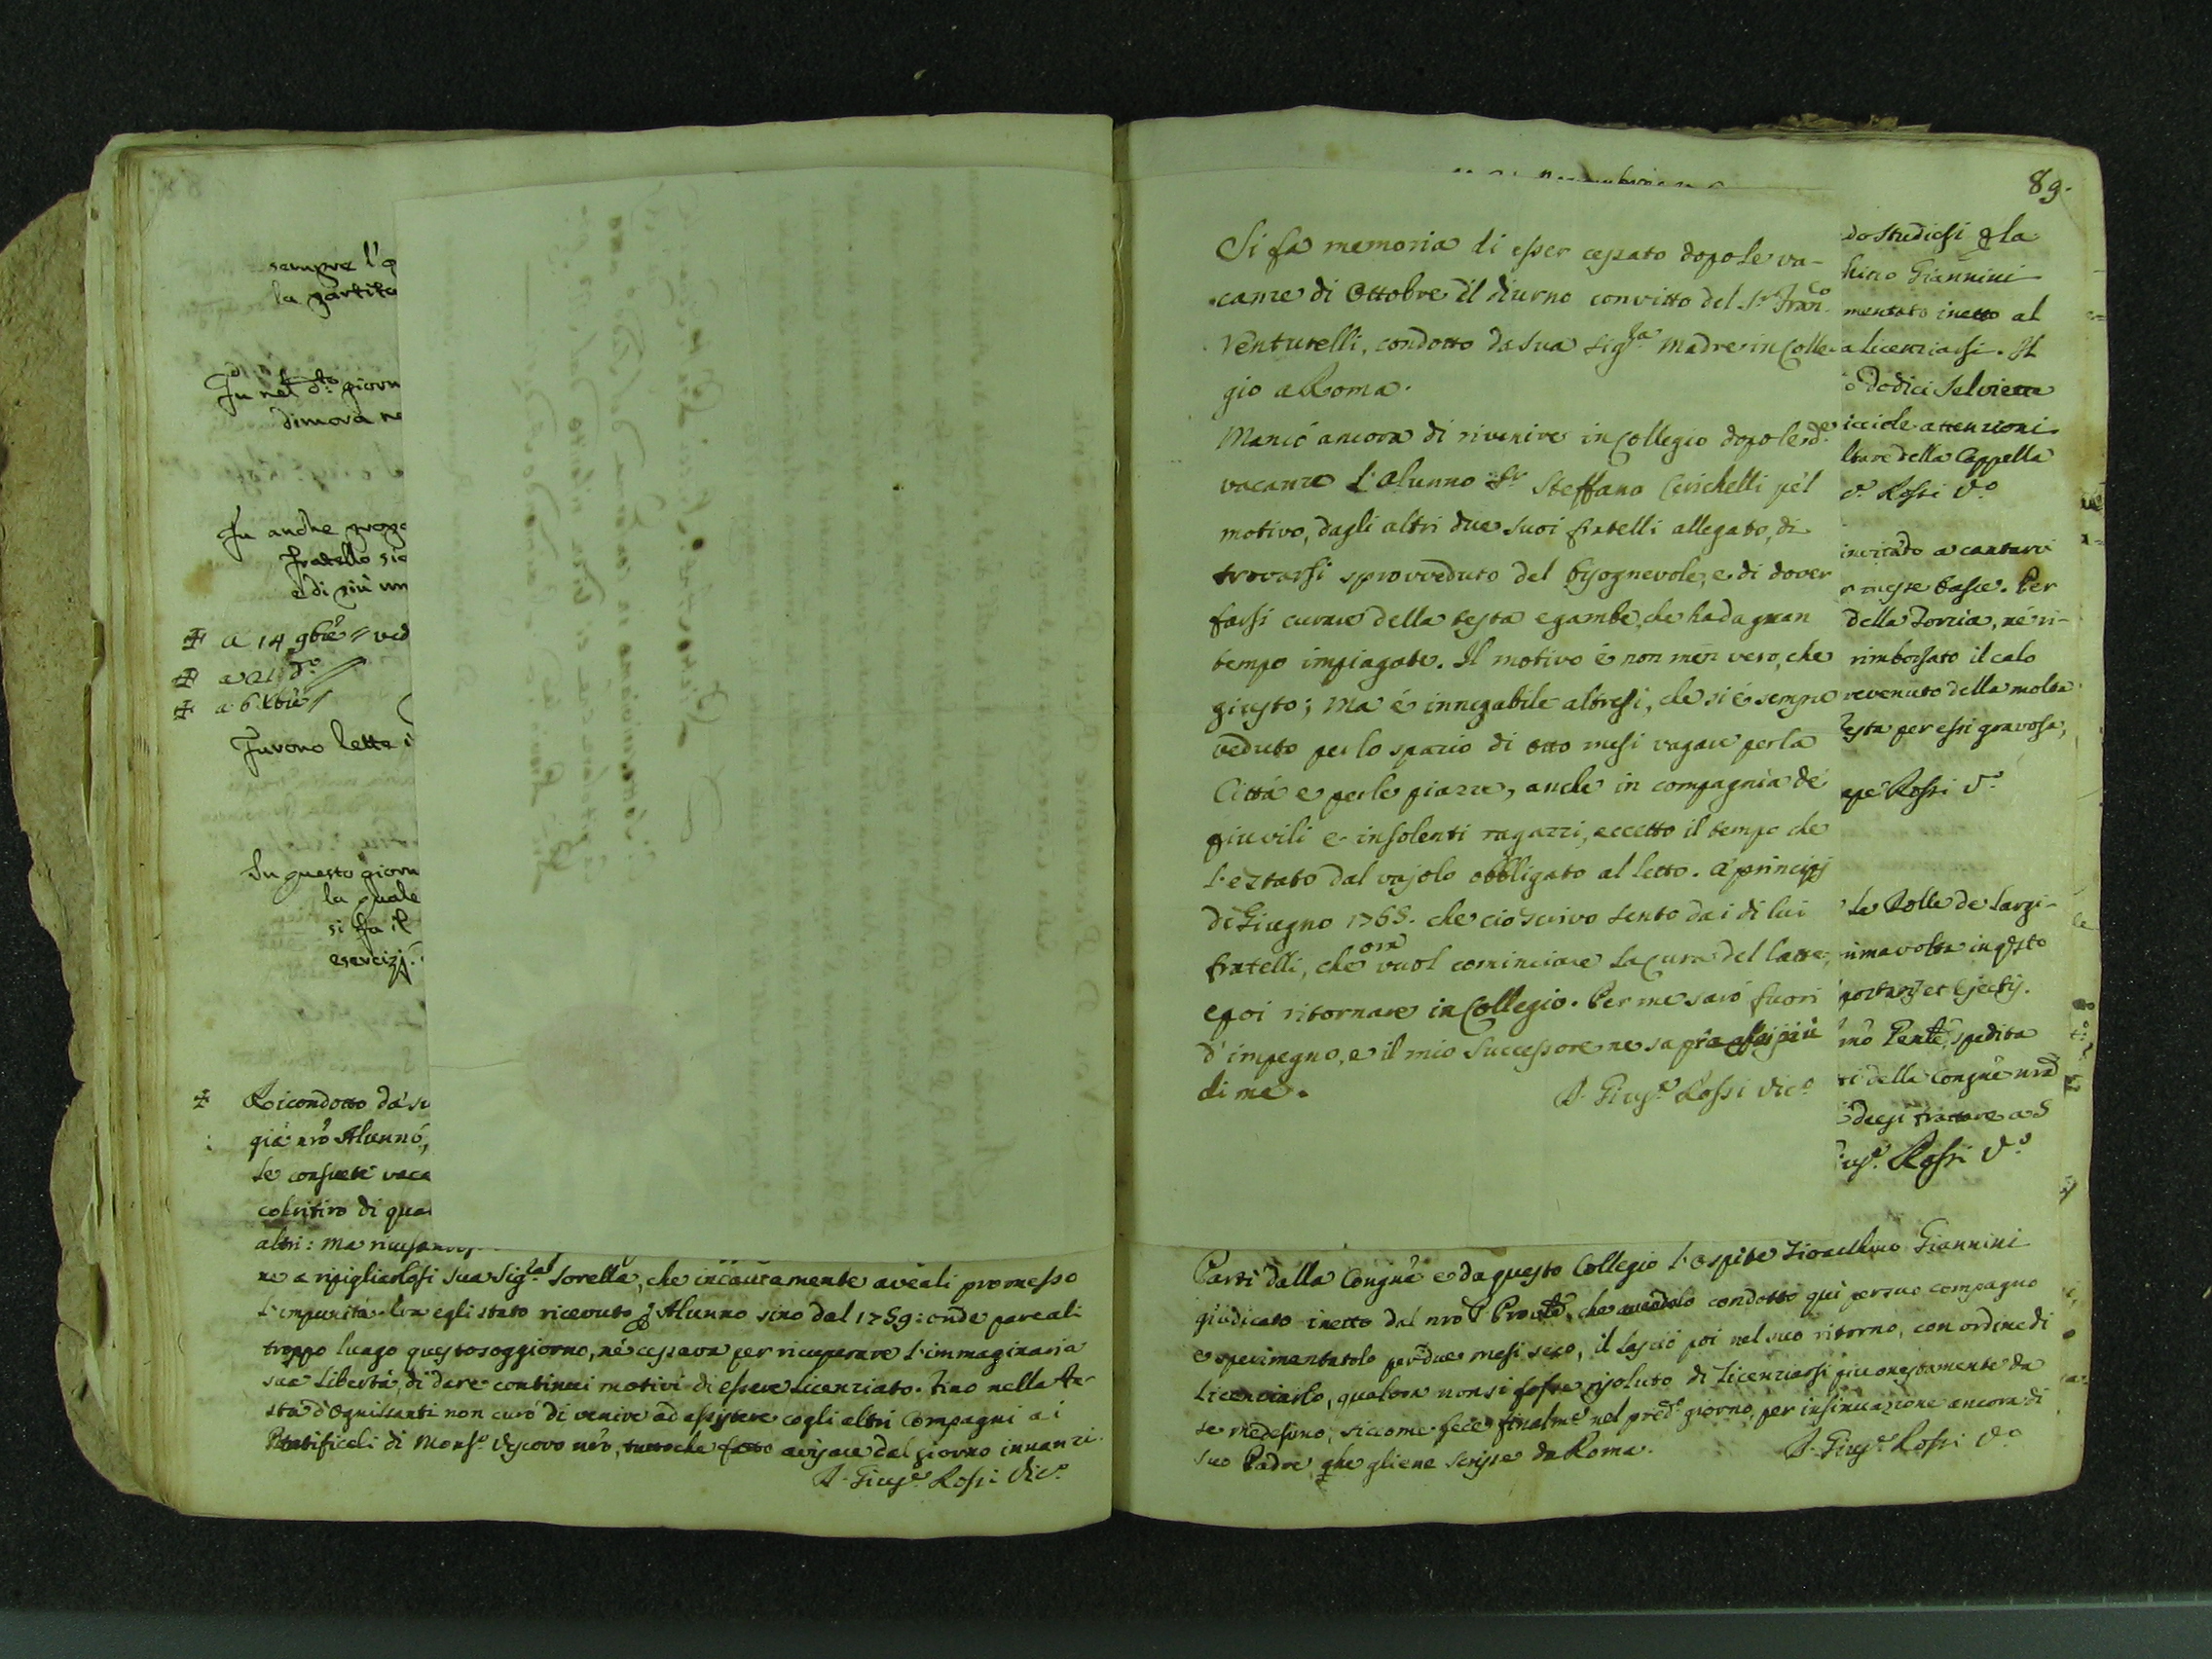 sempre l'o
la partita
Fu nel dº giorn
dimora ne
Fu anche prega
fratello sig
e di più un
a 14 9bre ved
a 21 dº
a 6 Xbre
Furono lette
In questo giorn
la quale
si fa il
esercizj.
Ricondotto da su
già nrõ Alunno,
le consuete vaca
col ritiro di qua
altri: ma ricusan
ne a ripigliarlasi sua Sig.ra Sorella, che incautamente aveali promesso
l'impunità. Era egli stato ricevuto Alunno sino dal 1759: onde pareali
troppo lungo questo soggiorno, nè cessava per ricuperare l'immaginaria
sua libertà, di dare continui motivi di essere licenziato. Fino nella fe-
sta d'Ognissanti non curò di venire ad assistere cogli altri Compagni a i
Pontificali di Mons.e Vescovo nrõ, tuttoche fatto avisare dal giorno innanzi.
D. Giusp.e Rossi Vic.º
89.
Si fa memoria di esser cessato dopo le va-
canze di Ottobre il diurno convitto del S.r Fran.co
Venturelli, condotto da sua Sig.ra Madre in Colle-
gio a Roma.
Mancò ancora di rivenire in Collegio dopo le d.e
vacanze l'Alunno Sr Steffano Cerichelli pe'l
motivo, dagli altri due suoi fratelli allegato, di
trovarsi sprovveduto del bisognevole, e di dover
farsi curare della testa e gambe, che ha da gran
tempo impiagate. Il motivo è non men vero, che
giusto; Ma è innegabile altresì, che si è sempre
veduto per lo spazio di otto mesi vagare per la
Città e per le piazze, anche in compagnia de'
più vili e insolenti ragazzi, eccetto il tempo che
l'è stato dal vajolo obbligato al letto. A' principj
di Giugno 1765. che ciò scrivo sento da i di lui
fratelli, che ora vuol cominciare la cura del latte,
e poi ritornare in Collegio. Per me sarò fuori
d'impegno, e il mio Successore ne saprà assai più
di me.
D. Giusp.e Rossi Vic.º
do studiessi la
hino Giannini
mentato inetto al
a licenziarsi. Il
o dodici Salviette
icciole attenzioni
ltare della Cappella
e. Rossi V.º
invitato a cantarvi
o messe basse. Per
della Torcia, nè ri-
rimborsato il calo
revenuto della molta
esta per essi gravosa,
epe Rossi V.º
le Bolle de Largi-
rima volta in qsto
portans et Ejectis.
spedita
ti della Congne
deesi trattare a S
iusp.e Rossi V.º
Partì dalla Congnẽ e da questo Collegio l'ospite Gioacchino Giannini
giudicato inetto dal nrõ P. che avendolo condotto quì per suo compagno
e sperimentatolo per due mesi seco, il lasciò poi nel suo ritorno, con ordine di
licenziarlo, qualora non si fosse risoluto di licenziarsi più onestamente da
se medesimo; siccome fece finalm.e nel pred.º giorno, per insinuazione ancora di
suo Padre, che gliene scrisse da Roma.
D. Giusp.e Rossi V.º